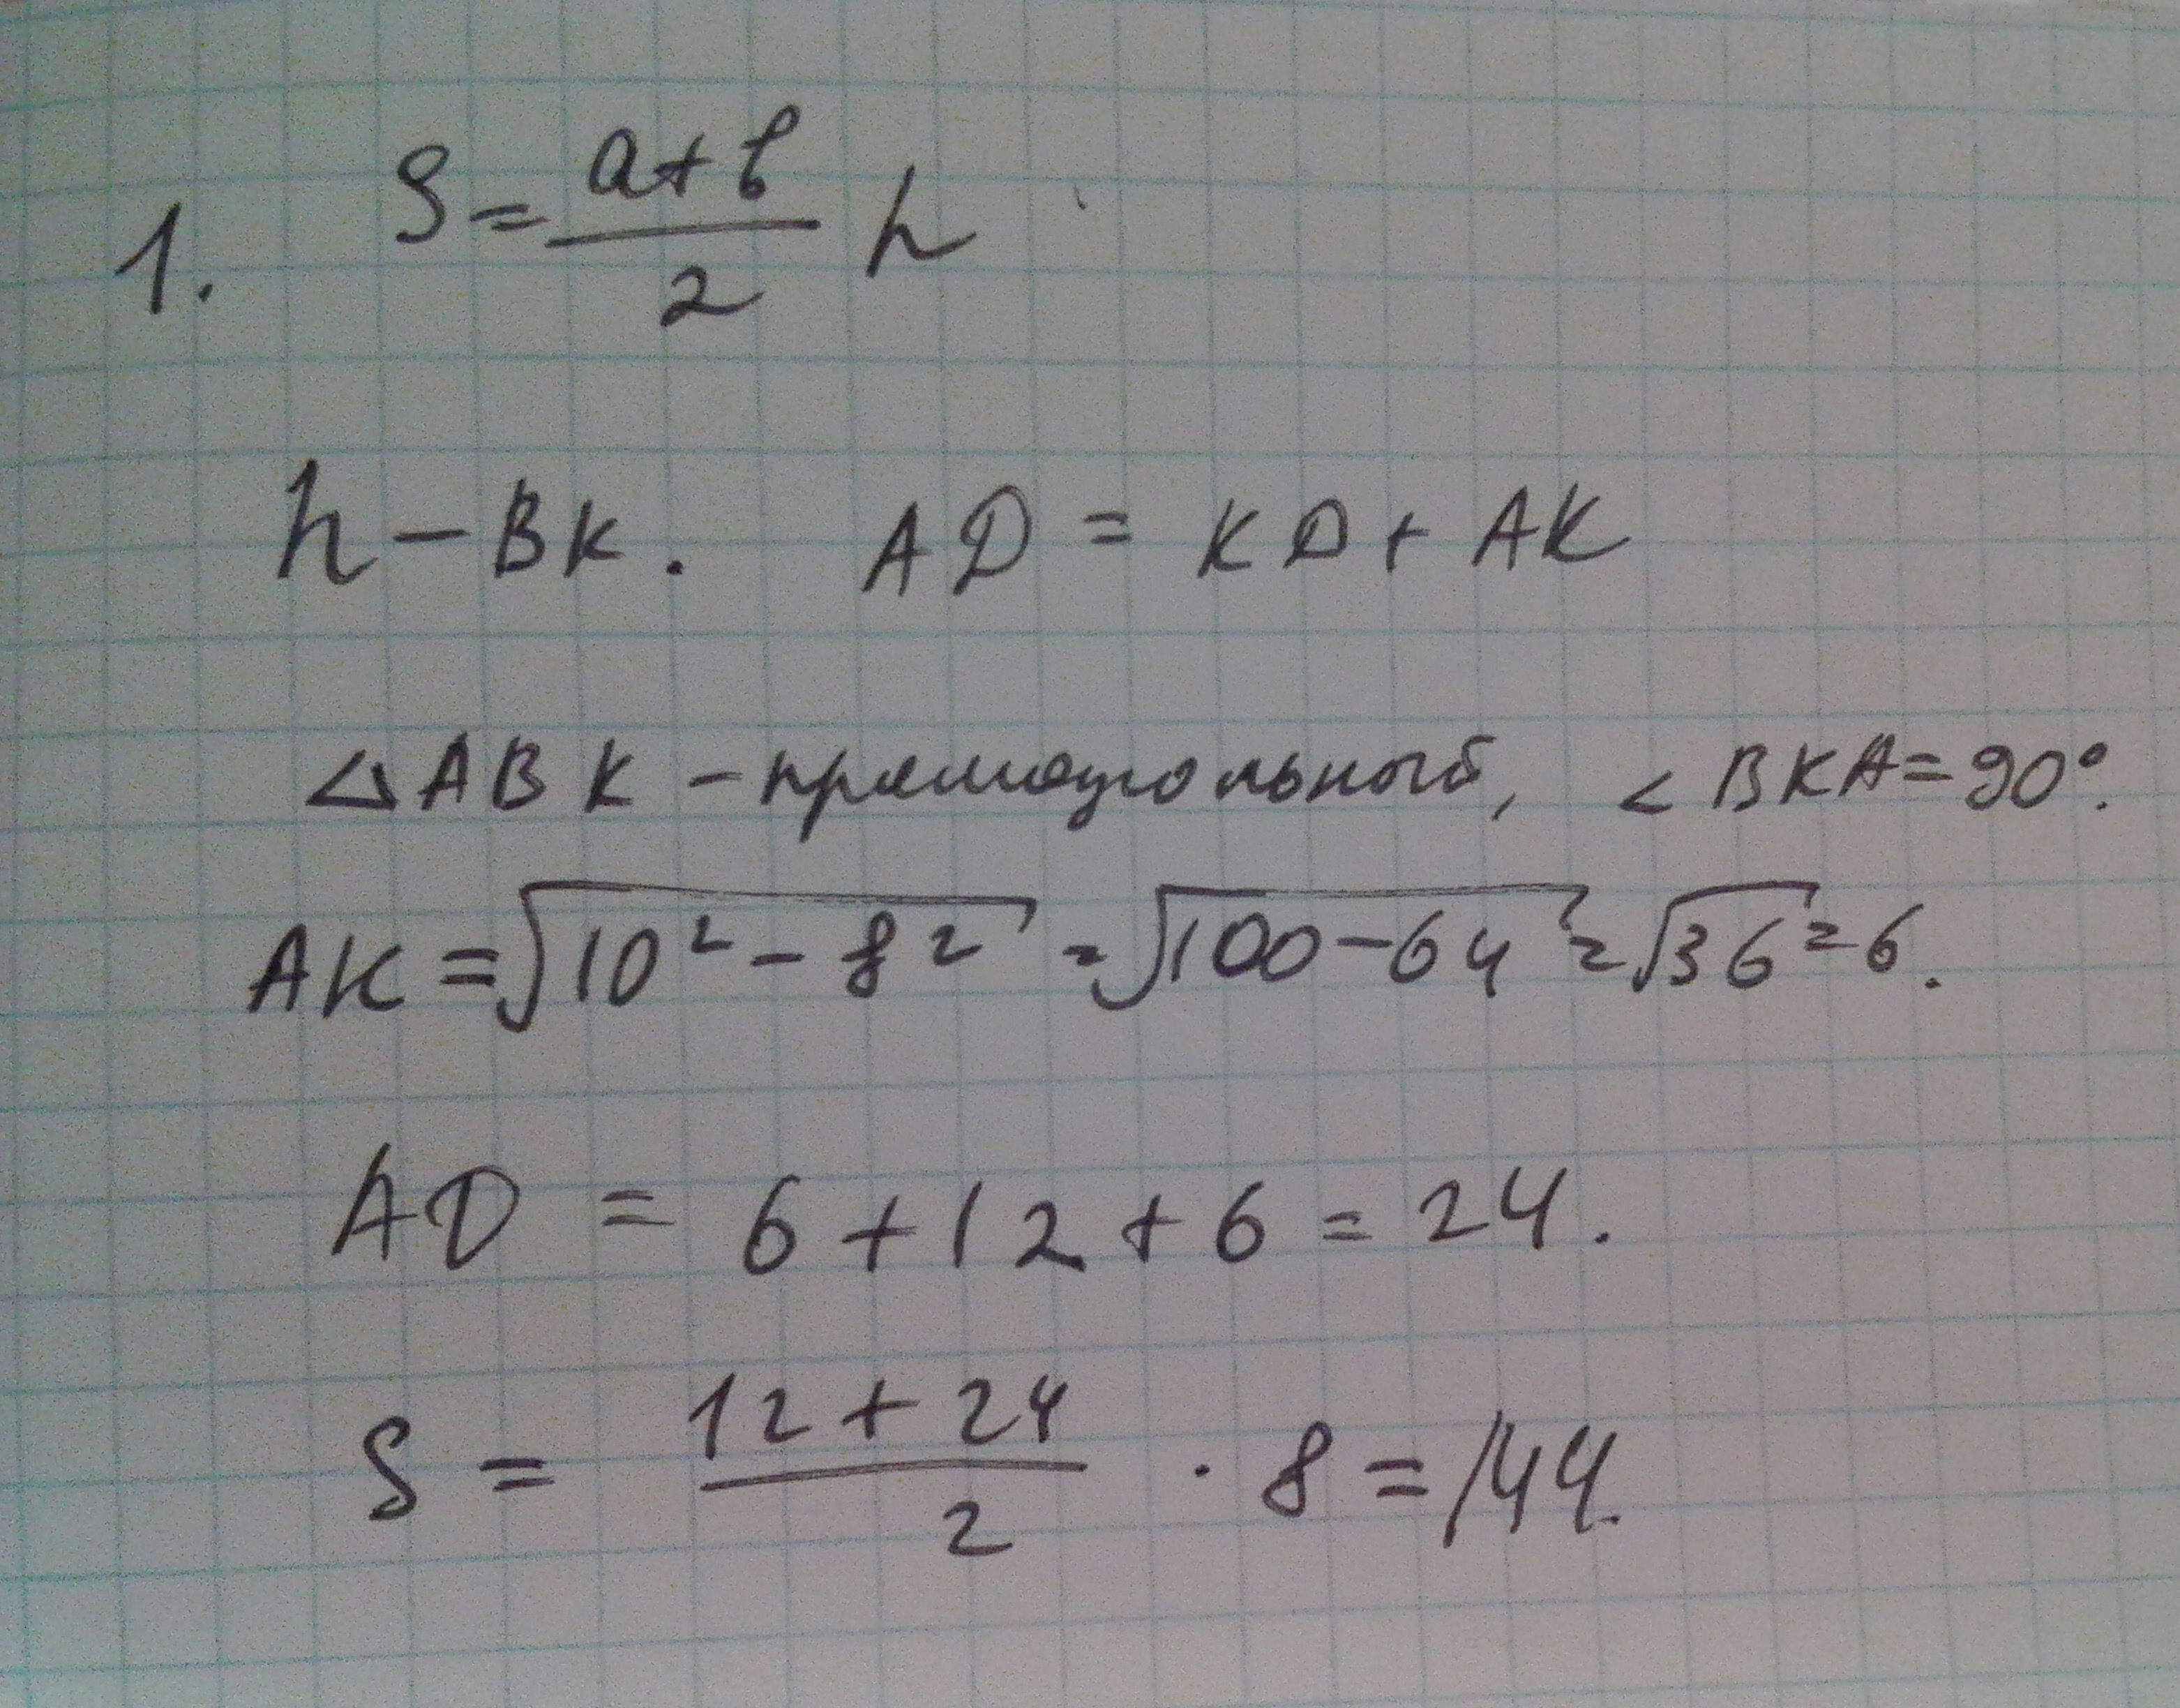 1. S = (a+b)/2 h
h – BK. AD = KD + AK
△ABK – прямоугольный, ∠BKA = 90°.
AK = √(10² – 8²) = √(100 – 64) = √36 = 6.
AD = 6 + 12 + 6 = 24.
S = (12 + 24)/2 · 8 = 144.